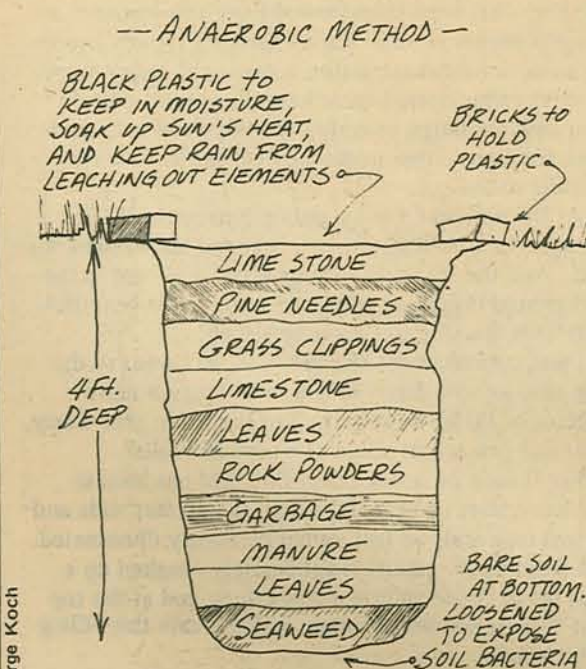 -- ANAEROBIC METHOD --
BLACK PLASTIC to
KEEP IN MOISTURE,
SOAK UP SUN'S HEAT,
AND KEEP RAIN FROM
LEACHING OUT ELEMENTS
BRICKS to
HOLD
PLASTIC
LIME STONE
PINE NEEDLES
GRASS CLIPPINGS
LIMESTONE
LEAVES
ROCK POWDERS
GARBAGE
MANURE
LEAVES
SEAWEED
4 Ft.
DEEP
BARE SOIL
AT BOTTOM.
LOOSENED
TO EXPOSE
SOIL BACTERIA
rge Koch